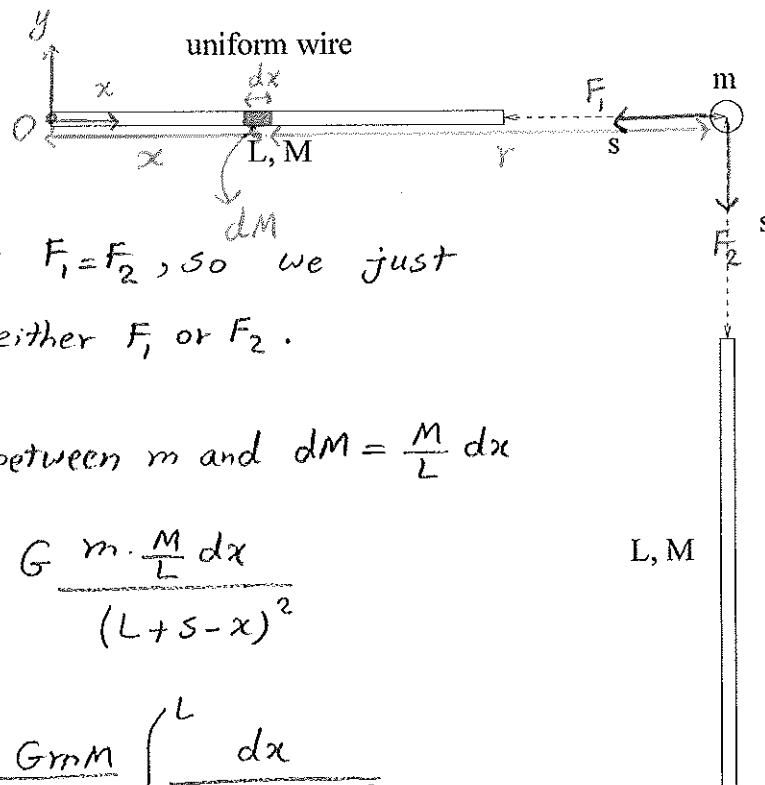 y
uniform wire
dx
x
F₁
m
O
x
L, M
r
s
dM
s
F₂
F₁ = F₂, so we just
either F₁ or F₂.
between m and dM = M/L dx
G m · M/L dx / (L + s - x)²
L, M
GmM ∫ᴸ dx